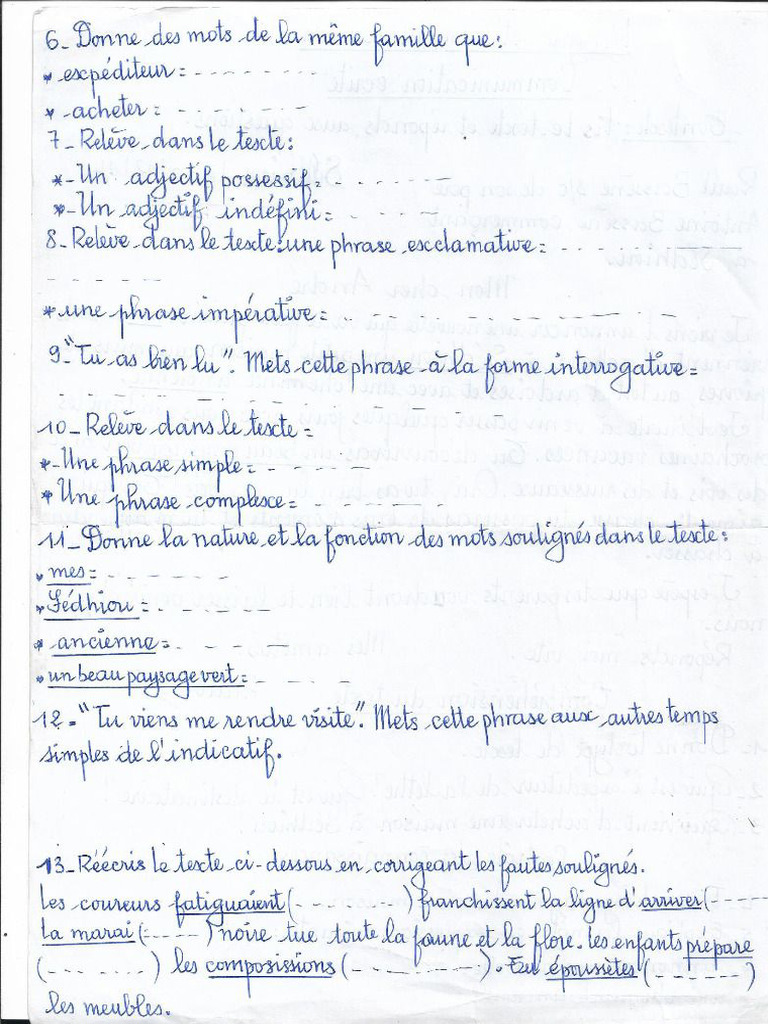 6_ Donne des mots de la même famille que:
* expéditeur = - - - - - - - -
* acheter = - - - - - -
7_ Relève dans le texte:
*_ Un adjectif possessif = - - - - - -
*_ Un adjectif indéfini = - - - - - -
8_ Relève dans le texte: une phrase exclamative = - - - - - - - -
- - - - - -
* une phrase impérative = - - - - - - - - - - - -
9_ "Tu as bien lu". Mets cette phrase à la forme interrogative =
- - - - - - - - - - - - - - -
10_ Relève dans le texte =
*_ Une phrase simple = - - - - - -
* Une phrase complexe = - - - - - - -
11_ Donne la nature et la fonction des mots soulignés dans le texte:
* mes = - - - - - - -
* Sédhiou = - - - - - -
* ancienne = - - - - - -
* un beau paysage vert = - - - - - -
12_ "Tu viens me rendre visite". Mets cette phrase aux autres temps
simples de l'indicatif.
13_ Réécris le texte ci-dessous en corrigeant les fautes soulignés.
Les coureurs fatiguaient (- - - - - - -) franchissent la ligne d'arriver (-
La marai (- - - - -) noire tue toute la faune et la flore. Les enfants prépare
(- - - - - - -) les composissions (- - - - - - - -). Tu époussètes (- - - - - -)
les meubles.